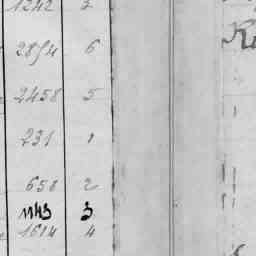 1242
2854 6
2458 5
231 1
658 2
1143 3
1614 4